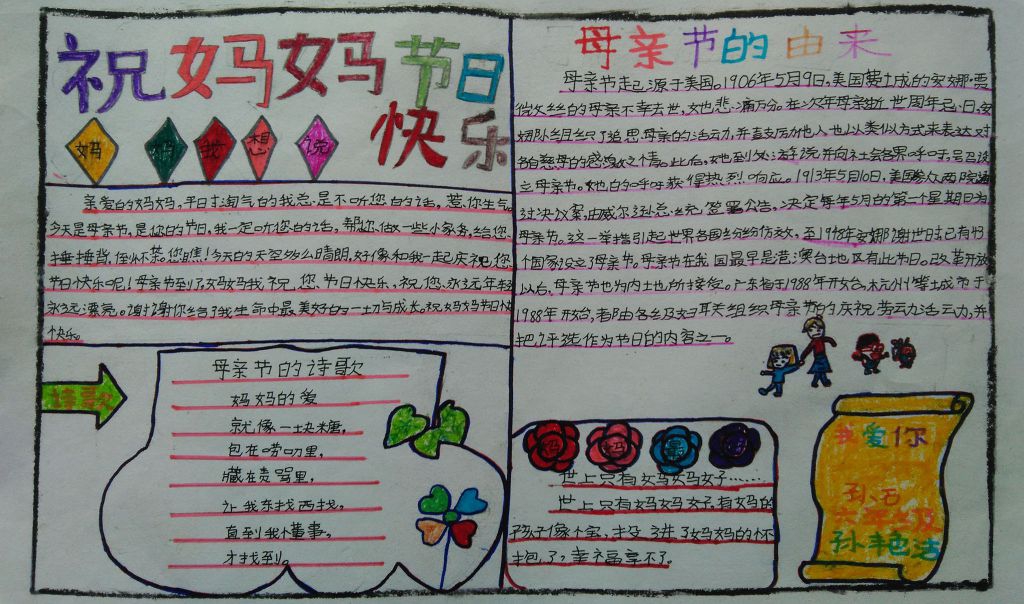 祝妈妈节日
快乐
妈 妈 我 想 说
亲爱的妈妈,平日淘气的我总是不听您的话。惹你生气。
今天是母亲节,是你的节日,我一定听您的话。帮你做一些小家务,给您
捶捶背,但怀惹您焦!今天的天空多么晴朗,好像和我一起庆祝您
节日快乐呢!母亲节到了妈妈我祝您、节日快乐。祝您、永远年轻
永远漂亮。谢谢你给了我生命中最美好的一切与成长。祝妈妈节日
快乐。
诗歌
母亲节的诗歌
妈妈的爱
就像一块糖,
包在唠叨里,
藏在责骂里,
让我东找西找,
直到我懂事。
才找到。
母亲节的由来
母亲节起源于美国。1906年5月9日,美国费土成的安娜·贾
微丝的母亲不幸去世,她悲痛万分。在次年母亲逝世周年忌日,安
娜组织了追思母亲的活动,并直支励他人也以类似方式来表达对
各自慈母的感激之情。此后,她到处游说并向社会各界呼吁,号马设
立母亲节。她的呼吁获得热烈响应。1913年5月10日,美国参众两院通
过决议案,由威尔逊总统签署公告,决定每年5月的第一个星期日为
母亲节。这一举措引起世界各国纷纷仿效,至1948年安娜谢世时已有43
个国家设立了母亲节。母亲节在我国最早是港澳台地区有此节日。改革开放
以后,母亲节也为内土地所接受。广东省于1988年开始,杭州等城市于
1988年开始,者由各级妇耳关组织母亲节的庆祝劳动办活动,并
把评选作为节日的内容之一。
妈 妈 最
世上只有妈妈好……
世上只有妈妈好,有妈的
孩子像个宝,投进了妈妈的怀
抱了,幸福享不了。
我爱你
六年级